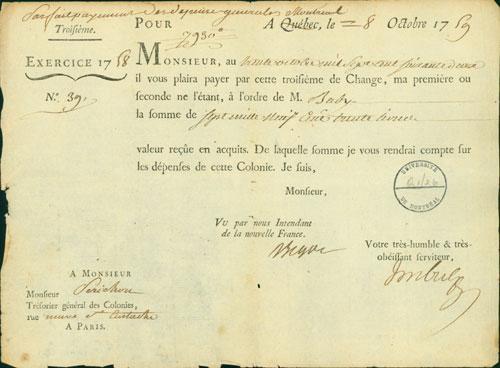 Parfait payement des depenses generales Montreal
Troisième. POUR 7930# A Québec, le 8 Octobre 1759
EXERCICE 1758
MONSIEUR, au trente octobre mil sept cent soixante deux
il vous plaira payer par cette troisième de Change, ma première ou
seconde ne l'étant, à l'ordre de M. Baby
N.º 39.
la somme de sept mille neuf cent trente livres
valeur reçûe en acquits. De laquelle somme je vous rendrai compte sur
les dépenses de cette Colonie. Je suis,
Monsieur,
UNIVERSITÉ
DE MONTRÉAL
Vu par nous Intendant
de la nouvelle France.
Bigot
Votre très-humble & très-
obéissant serviteur,
Imbert
A MONSIEUR
Monsieur Périchon
Trésorier général des Colonies,
rue neuve St Eustache
A PARIS.